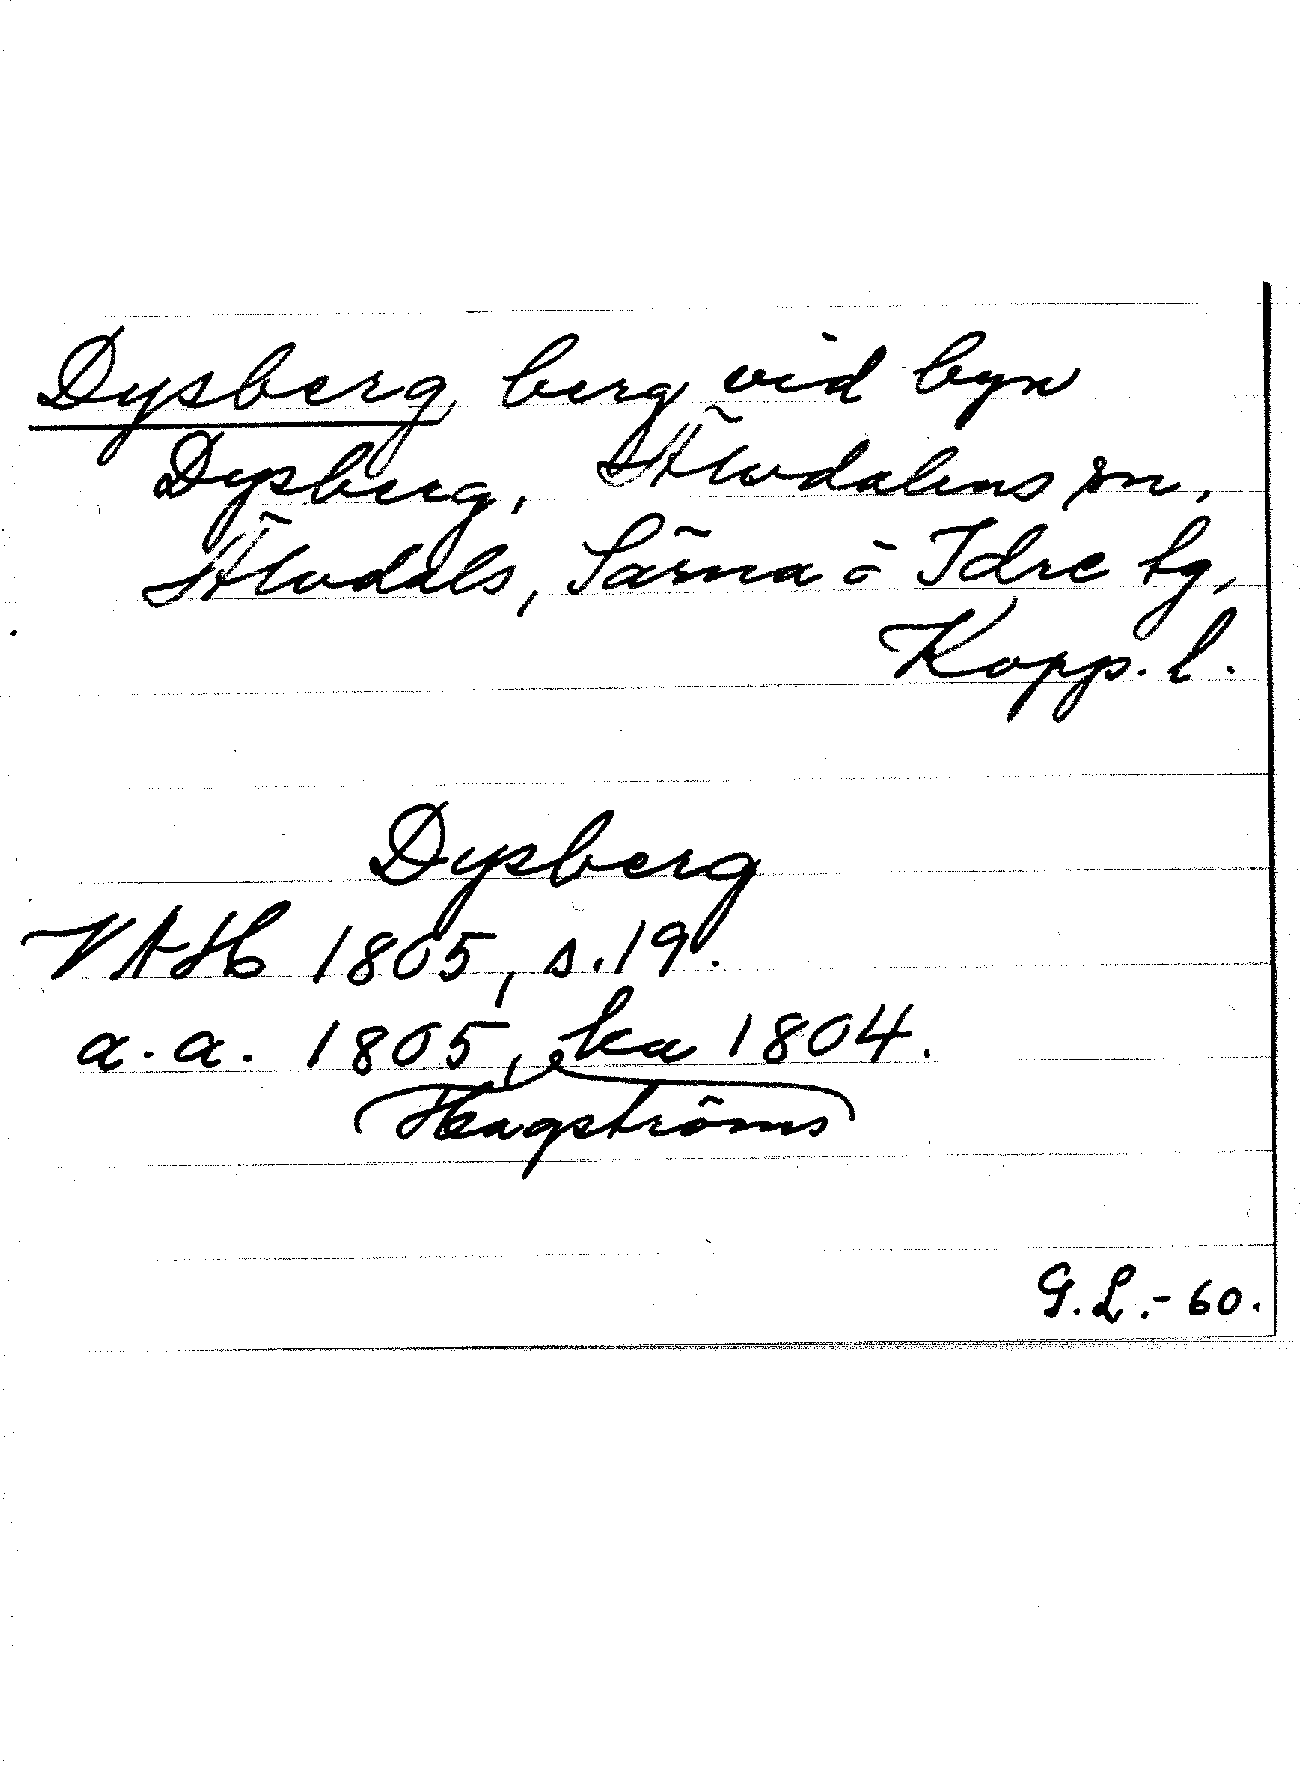 Dysberg berg vid byn
Dysberg, Älvdalens sn,
Älvdals, Särna o Idre tg,
Kopp. l.
Dysberg
VAH 1805, s. 19.
a. a. 1805, ka 1804.
Hagströms
G. L. - 60.